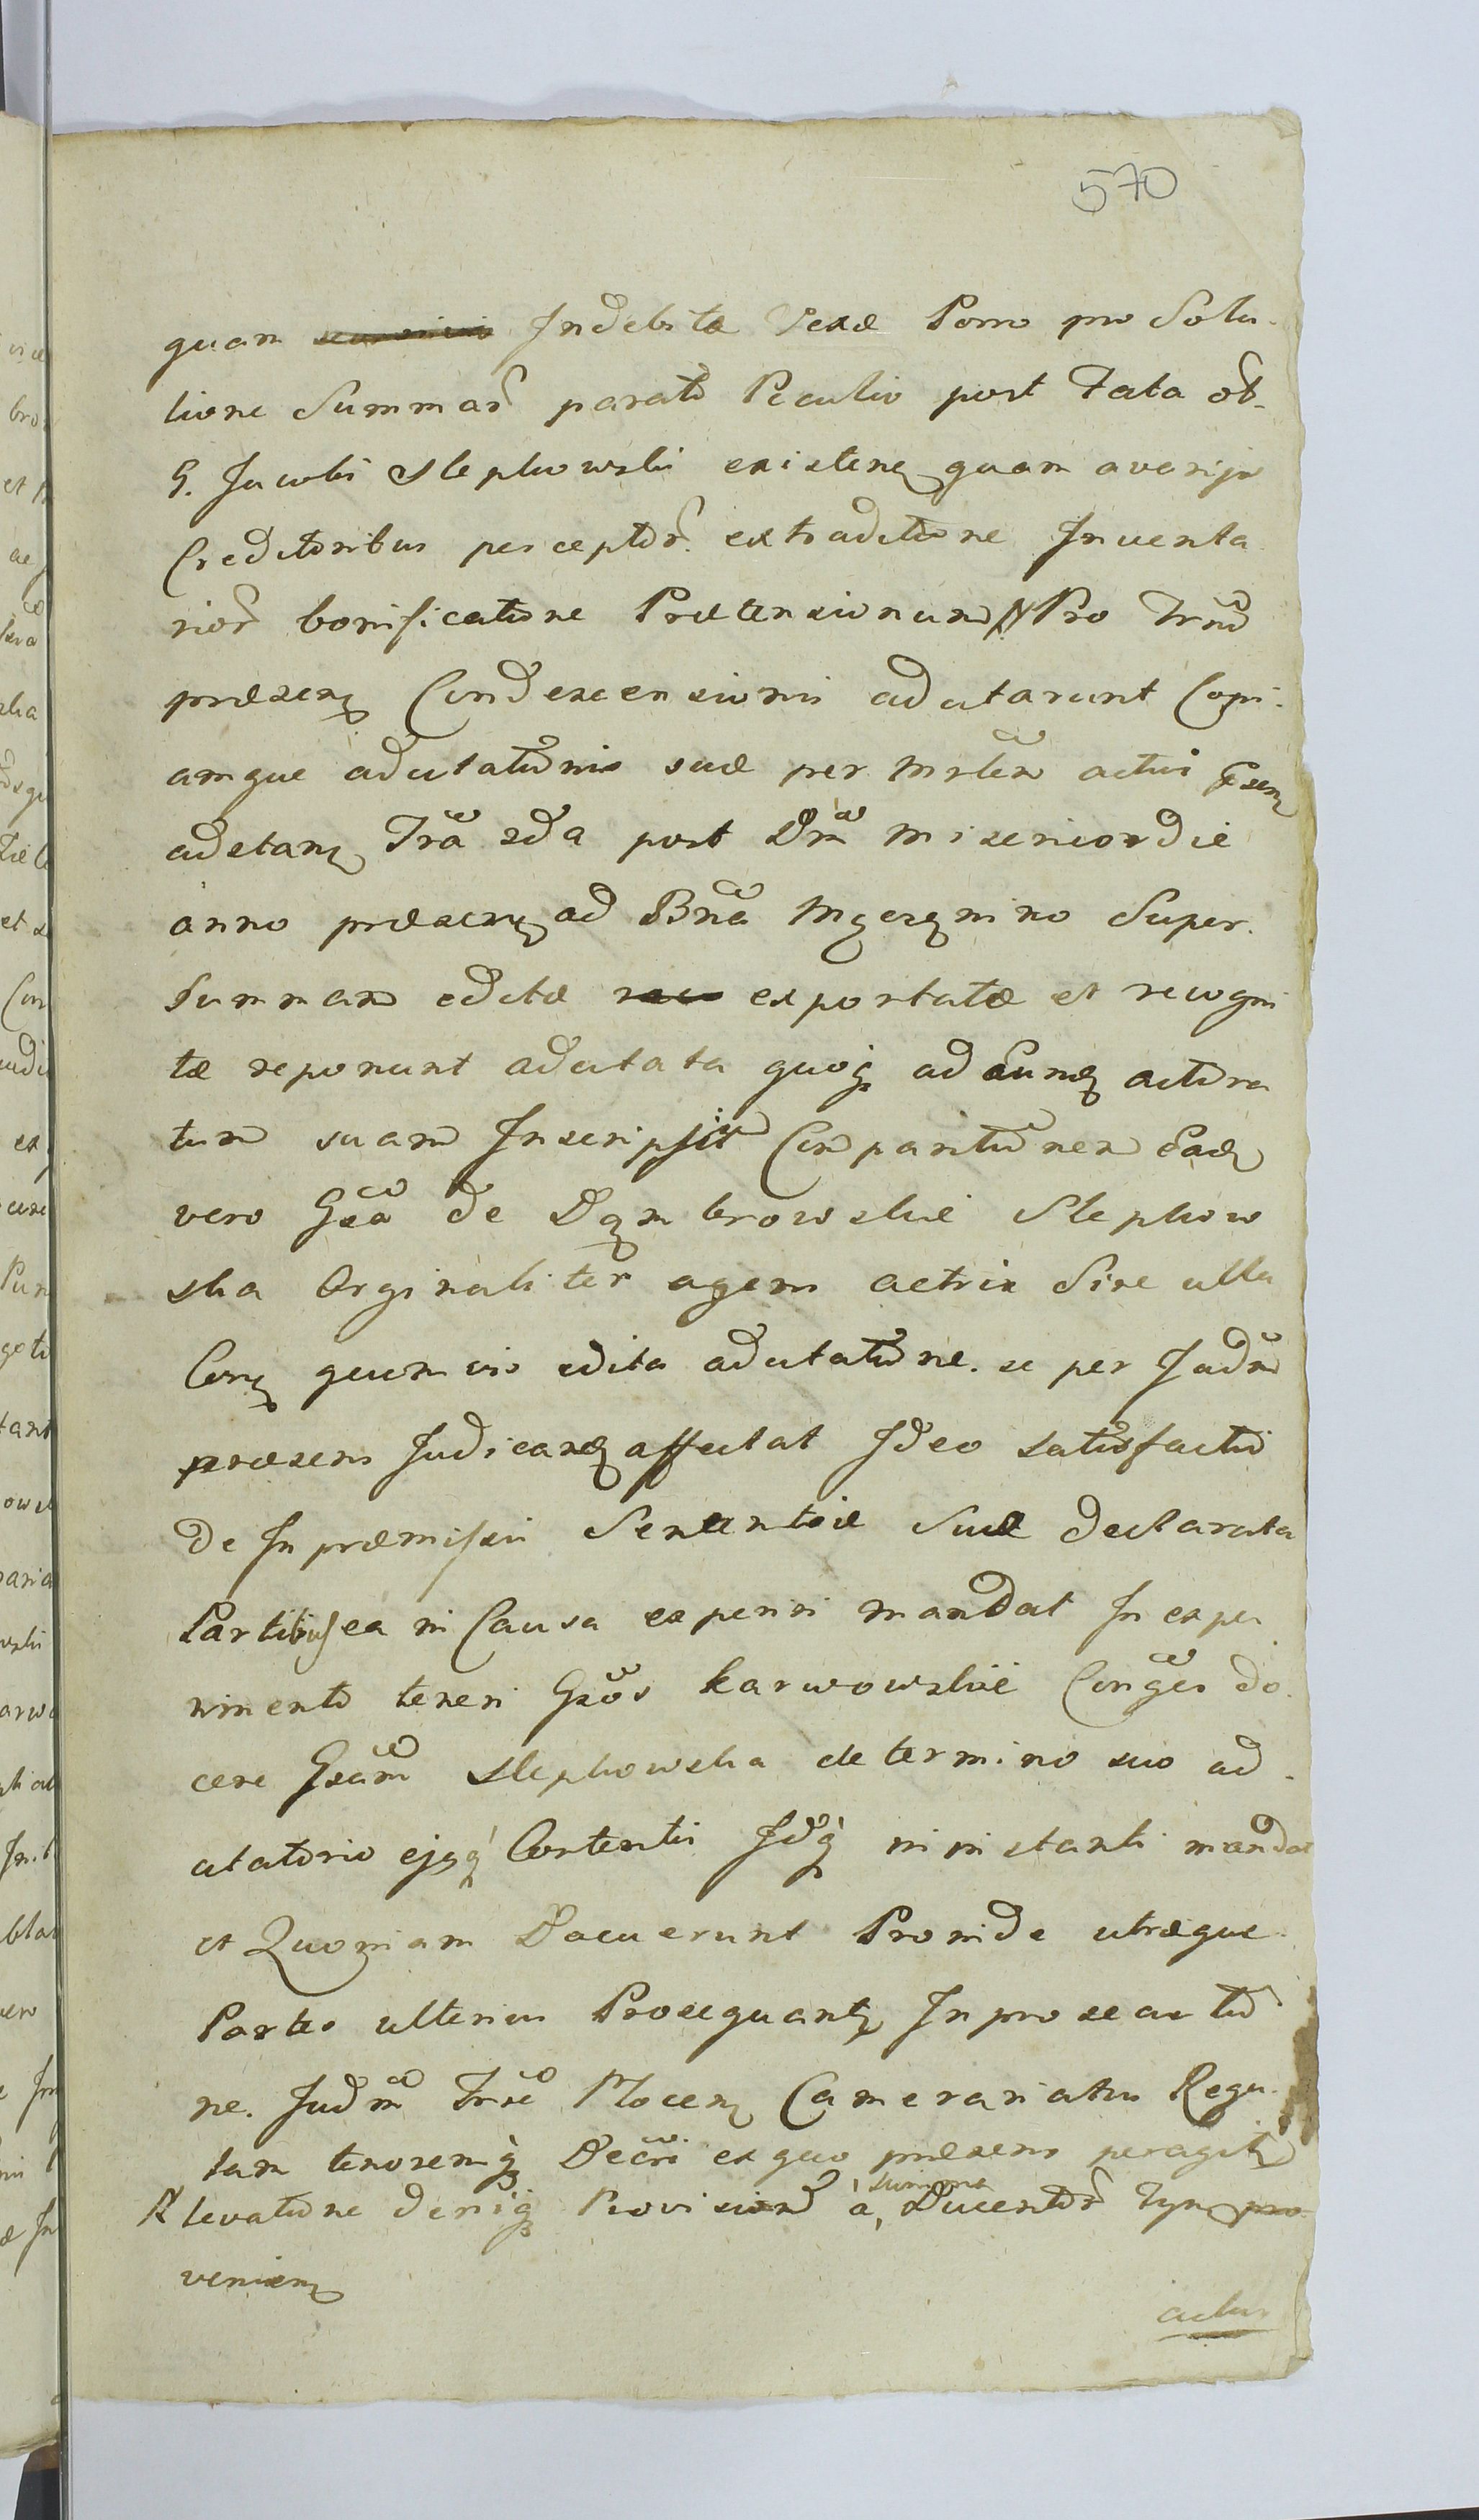 570
quam Indebitæ Vexæ Porro pro Solu-
tione Summar parato Peculio post Fata ol-
G. Jacobi Stępkowski existenę quam avonijs
Creditoribus perceptor. extraditione Inventa
rior bonificatione Prætensionum # Pro Trno
præsenę Condescensionis adcitarunt Copi-
amque adcitationis suæ per Mrlem actui
adcitanę Fria 2da post Dnicam Misericordiæ
anno præsenę ad Bna Męczęnino Super
Summam editæ exportatæ et recogni
tæ reponunt adcitata quoq ad Eundę actora
tum suam Inscripsit Comparitionem Eadę
vero Gsa de Dąmbrowskie Stępkow
ska Orginaliter agens actrix Sine ulla
Conę quamvis edita adcitatione. se per Judm
præsens Judicanę affectat Ideo satisfactio
de In præmissis Sententiæ Suæ declarata
Partibus ea in Causa experiri mandat In expe
rimento teneri Gsos Karwowskie Conges do-
cere Gsam Stępkowska de termino suo ad-
citatorio ejqq Contentis Idq in instanti mandat
et Quoniam Docuerunt Proinde utræque
Partes ulterius Prosequantę In prosecutio
ne. Judm Trre Plocenę Camerariatus Regu-
lam tenoremq Decri ex quo præsens peragitę
# levatione deniq Provisiond à, Summa Ducentor Tynę
venienę
actus